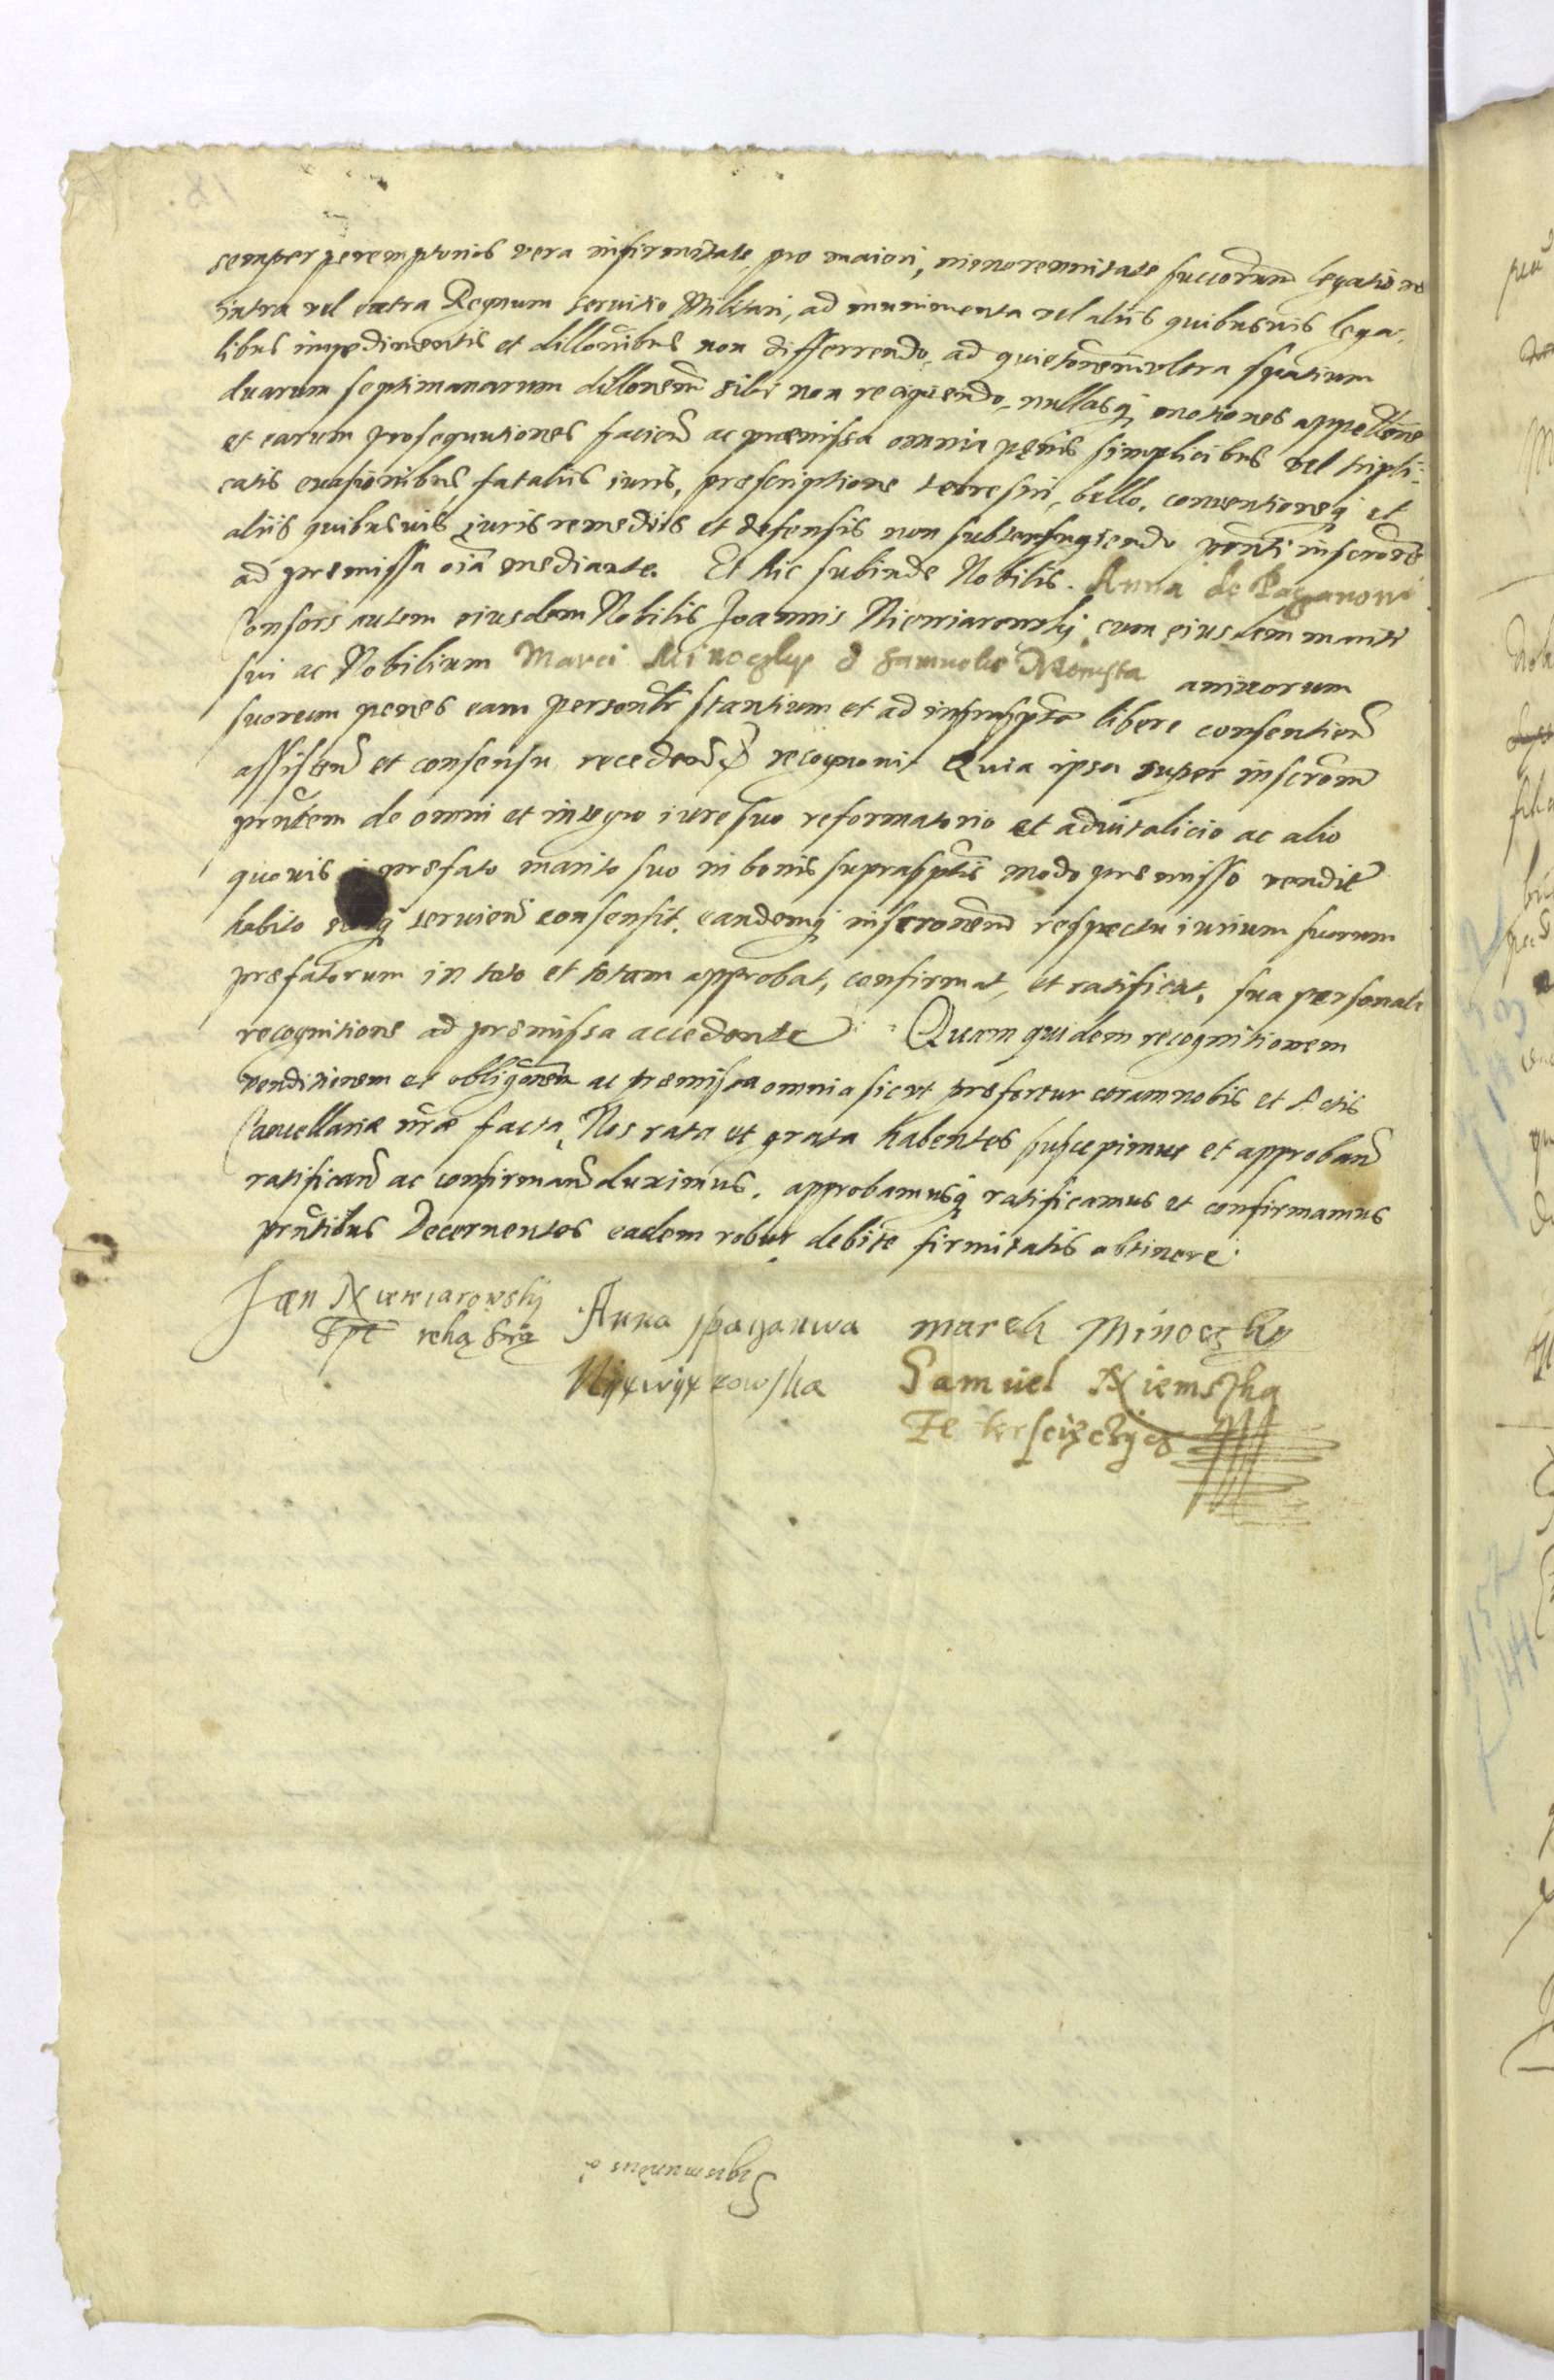 semper peremptorios vera infirmitate, pro maiori, minorennitate succorum legatione
intra vel extra Regnum servitio Militari, ad munimenta vel aliis quibusvis lega,
libus impedimentis et dillonibus non differrendo, ad quietonem ultra spatium
duarum septimanarum dillonem sibi non recipiendo, nullasq motiones appellones
et earum prosequutiones faciend ac praemissa omnia penis simplicibus vel tripli:
catis evasionibus, fataliis iuris, praescriptione terrestri, bello, conventioneq et
aliis quibusvis juris remediis et defensis non subterfugiendo pnti inscrone
ad premissa oia mediante. Et hic subinde Nobilis. Anna de Paganow
Consors autem eiusdem Nobilis Joannis Niewiarowskÿ cum eiusdem mariti
sui ac Nobilium Marci Minoczky & Samuelis Niemsta amicorum
suorum penes eam personlr stantium et ad infrascpta libere consentien
assisten et consensu recedend recognovit Quia ipsa super inscronem
pntem de omni et integro iure suo reformatorio et advitalicio ac alio
quovis prefato marito suo in bonis suprascptis modo premisso vendit
habito servien consensit, eandemq inscronem respectu iurium suorum
prefatorum in toto et totam approbat, confirmat, et ratificat, sua personali
recognitione ad premissa accedente Quam quidem recognitionem
venditionem et obligonem ac praemissa omnia sicut prefertur coram nobis et Actis
Cancellariae nrae facta, Nos rata et grata habentes suscepimus et approband
ratificand ac confirmand duximus, approbamusq ratificamus et confirmamus
pntibus Decernentes eadem robur debite firmitatis obtinere.
Jan Niewiarowskÿ Anna spaganwa marek Minoczky
ręką swą Nÿewÿarowska Samuel Niemstha
Sigismundus A